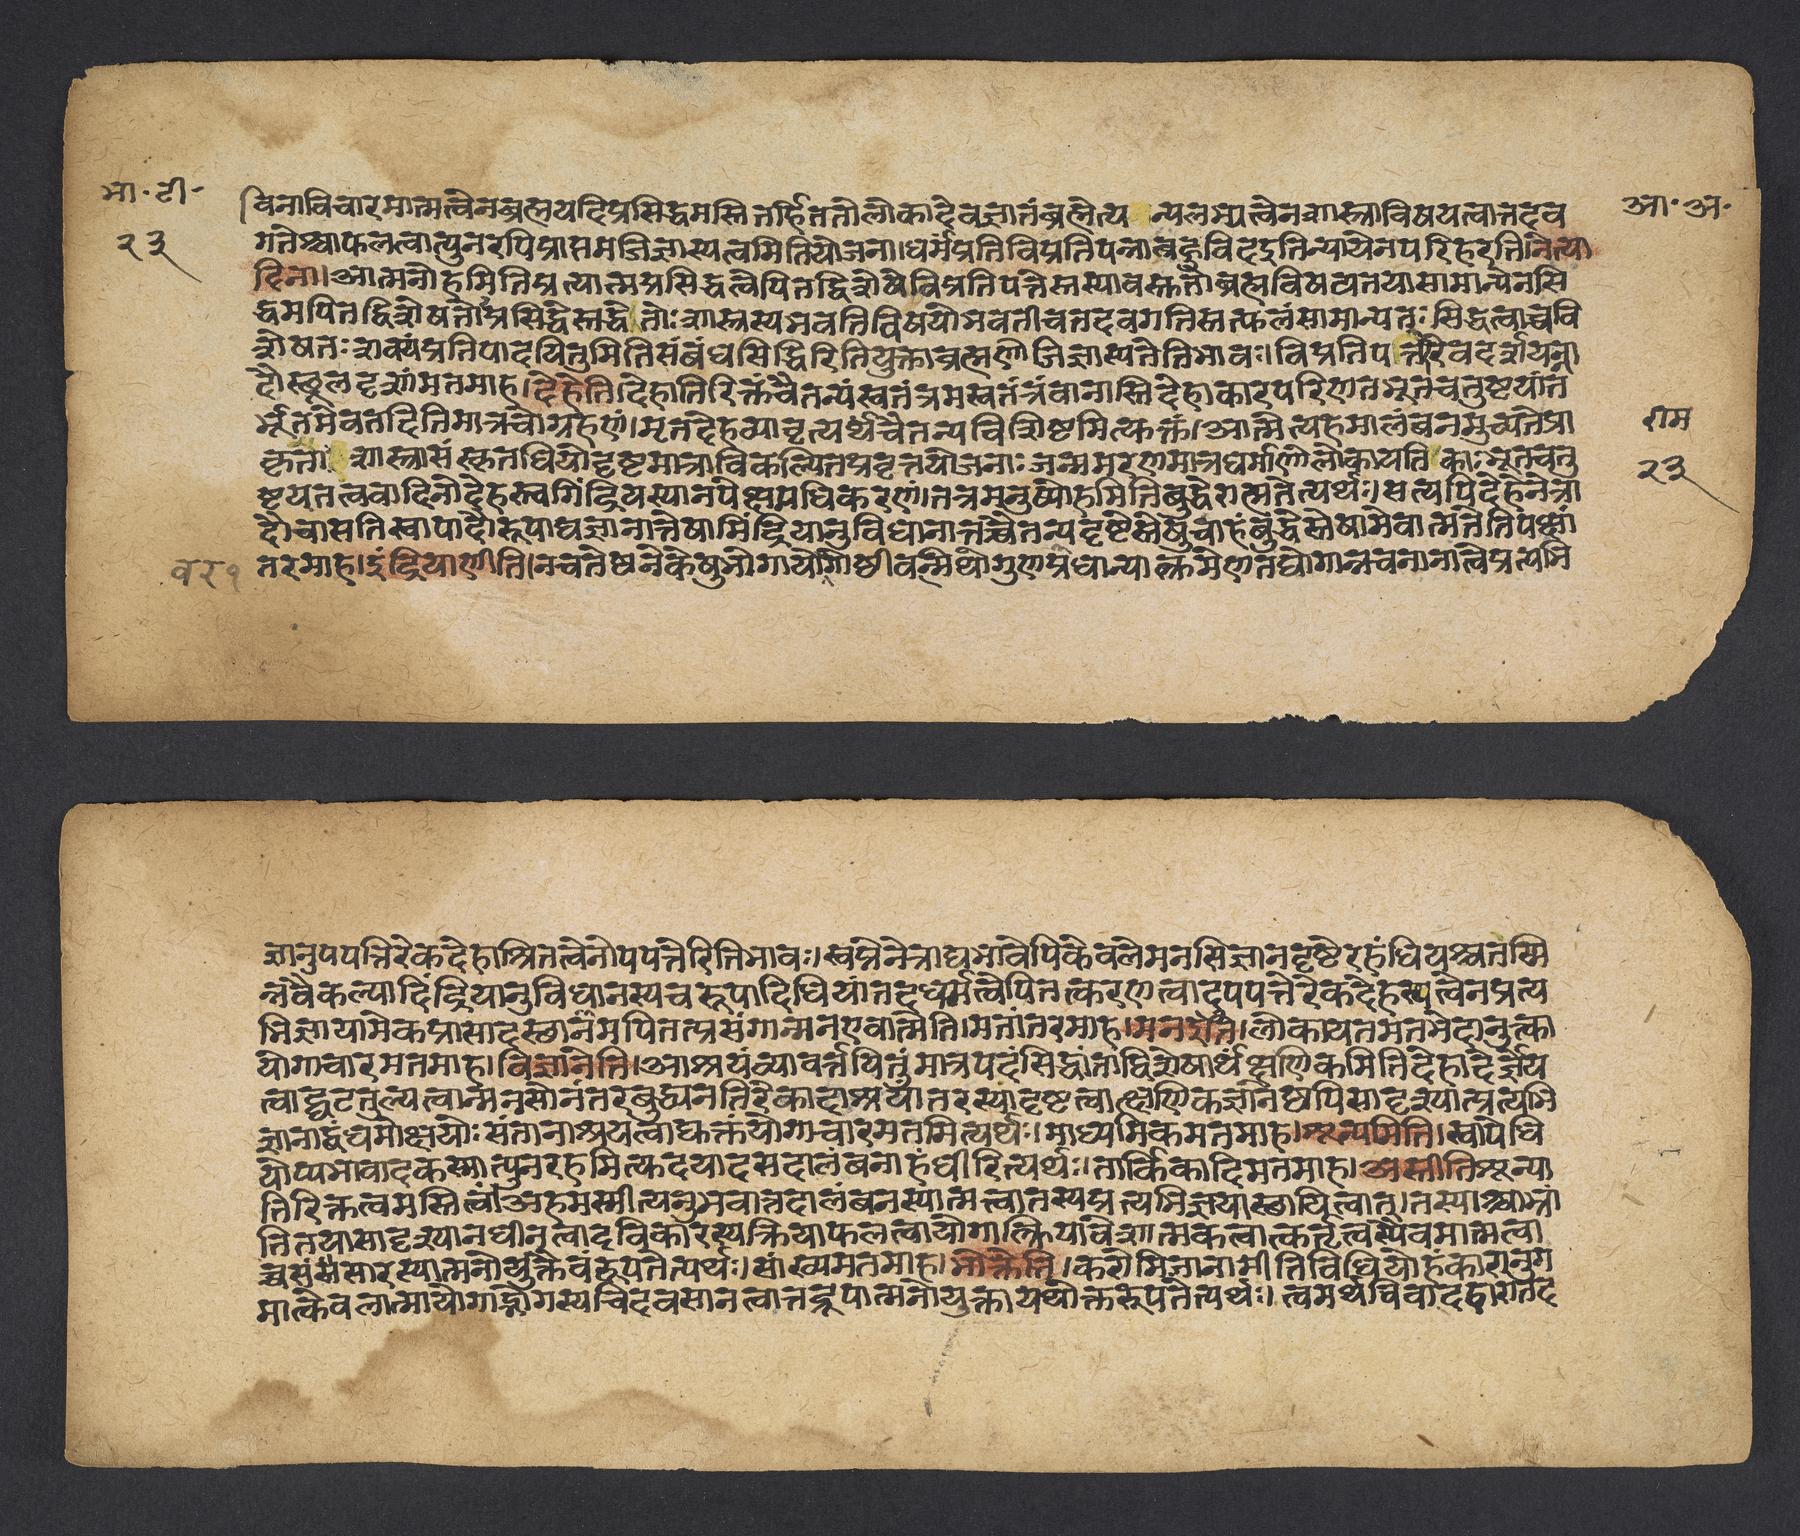 भा॰ टी॰
२३
आ॰ अ॰
विनाविचारमात्मत्वेनब्रह्मयदिप्रसिद्धमस्तितर्हिततोलोकादेवज्ञातंब्रह्मेत्य न्यलभ्यत्वेनशास्त्राविषयत्वात्तदव
गतेश्चाफलत्वात्पुनरपिप्राप्तमजिज्ञास्यत्वमितियोजना।धर्मंप्रतिविप्रतिपन्नाबहुविदइतिन्यायेनपरिहरतिनेत्या
दिना।आत्मनोहमितिप्रत्यात्मप्रसिद्धत्वेपितद्विशेषेविप्रतिपत्तेस्तस्यावस्तुतोब्रह्मविषयतयासामान्येनसि
द्धमपितद्विशेषतोप्रसिद्धेस्तद्धेतोःशास्त्रस्यभवतिविषयोभवतीचतदवगतिस्तत्फलंसामान्यतःसिद्धत्वाच्चवि
शेषतःशक्यंप्रतिपादयितुमितिसंबंधसिद्धिरितियुक्ताब्रह्मणोजिज्ञास्यतेतिभावः।विप्रतिपत्तीरेवदर्शयन्ना
दौस्थूलदृशांमतमाह।देहेति।देहातिरिक्तंचैतन्यंस्वतंत्रमस्वतंत्रंवानास्तिदेहाकारपरिणतभूतचतुष्टयांत
र्भूतमेवतदितिमात्रचोग्रहणं।मृतदेहव्यावृत्यर्थंचैतन्यविशिष्टमित्युक्तं।आत्मेत्यहमालंबनमुच्यतेप्रा
कृताः शास्त्रासंस्कृतधियोदृष्टमात्राविकल्पितप्रवृत्तयोजनाःजन्ममरणमात्रधर्माणोलोकायतिकाःभूतचतु
राम
२३
ष्टयतत्ववादिनोदेहस्त्वगिंद्रियस्यानपेक्षमधिकरणं।तत्रमनुष्योहमितिबुद्धेरात्मतेत्यर्थः।सत्यपिदेहेनेत्रा
दौचासतिस्वापादौरूपाद्यज्ञानात्तेषामिंद्रियानुविधानात्तच्चैतन्यदृष्टेस्तेषुचाहंबुद्धेस्तेषामेवात्मतेतिपक्षां
तरमाह।इंद्रियाणीति।नचतेष्वनेकेषुभोगायोगोष्ठीवन्मिथोगुणप्रधान्यात्क्रमेणतद्योगान्नचनानात्वेप्रत्यभि
ज्ञानुपपत्तिरेकदेहाश्रितत्वेनोपपत्तेरितिभावः।स्वप्नेनेत्राद्यभावेपिकेवलेमनसिज्ञानदृष्टेरहंधियश्चतस्मि
न्नवैकल्यादिंद्रियानुविधानस्यचरूपादिधियांतद्धर्मत्वेपितत्करणत्वादुपपत्तेरेकदेहस्पृत्वेनप्रत्य
भिज्ञायामेकप्रासादस्थानामपितत्प्रसंगान्मनएवात्मेति।मतांतरमाह।मनइति।लोकायतमतमेदानुत्का
योगाचारमतमाह।विज्ञानेति।आश्रयंव्यावर्त्तयितुंमात्रपदंसिद्धांताद्विशेषार्थंक्षणिकमितिदेहादेर्ज्ञेय
त्वाद्घटतुल्यत्वान्मनसोनंतरबुद्ध्यनतिरेकादाश्रयांतरस्यादृष्टत्वात्क्षणिकज्ञानेष्वपिसादृश्यात्प्रत्यभि
ज्ञानाद्बंधमोक्षयोःसंतानाश्रयत्वाद्युक्तंयोगाचारमतमित्यर्थः।माध्यमिकमतमाह।शून्यमिति।स्वापेधि
योप्यभावादकस्मात्पुनरहमित्युदयादसदालंबनाहंधीरित्यर्थः।तार्किकादिमतमाह।अस्तीतिशून्या
तिरिक्तत्वमस्तित्वं।अहमस्मीत्यनुभवात्तदालंबनस्यात्मत्वात्तस्यप्रत्यभिज्ञयास्थायित्वात्।तस्याश्चाभ्रां
तितयासादृश्यानधीनत्वादविकारस्यक्रियाफलत्वायोगात्क्रियावेशात्मकत्वात्कर्तृत्वस्यैवमात्मत्वा
च्चसंसंसारस्यात्मनोयुक्तैवंरूपतेत्यर्थः।सांख्यमतमाह।भोक्तेति।करोमिजानामीतिविधियोहंकारानुग
मात्केवलात्मायोगाद्भोगस्यचिदवसानत्वात्तद्रूपात्मनोयुक्तायथोक्तरूपतेत्यर्थः।त्वमर्थविवादद्वारातद